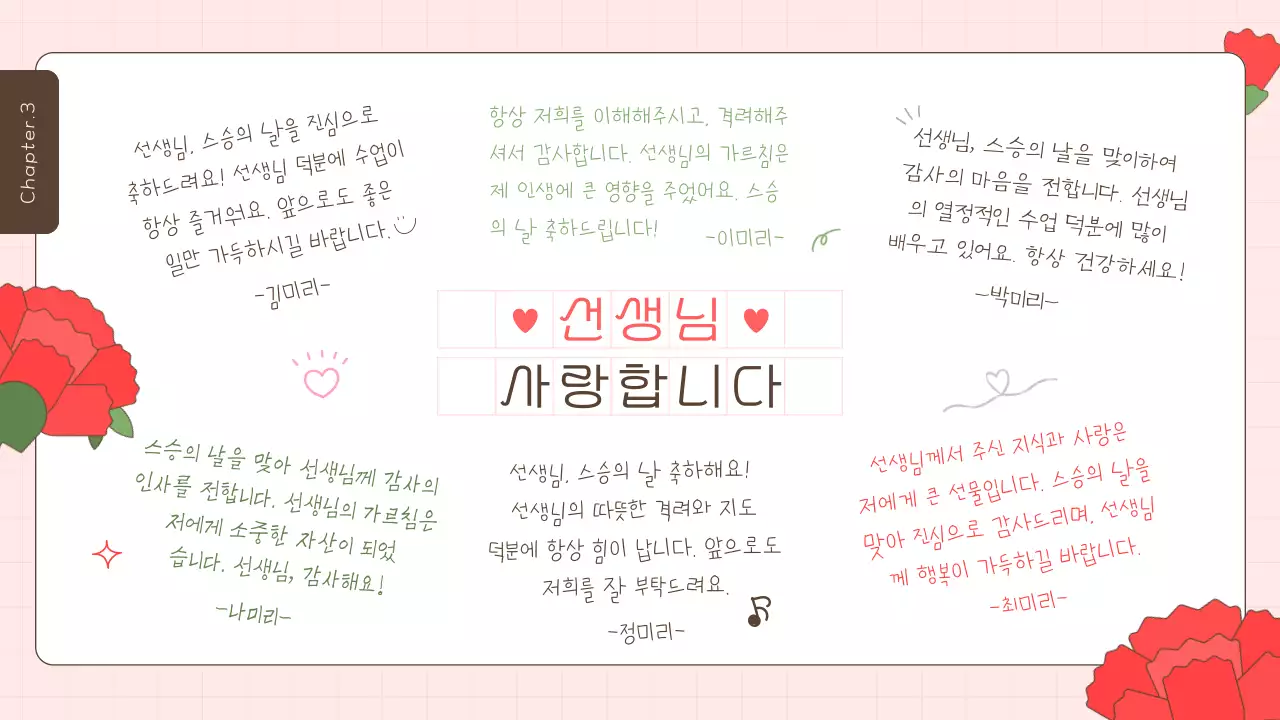 Chapter.3
선생님, 스승의 날을 진심으로
축하드려요! 선생님 덕분에 수업이
항상 즐거워요. 앞으로도 좋은
일만 가득하시길 바랍니다.
-김미리-
항상 저희를 이해해주시고, 격려해주
셔서 감사합니다. 선생님의 가르침은
제 인생에 큰 영향을 주었어요. 스승
의 날 축하드립니다!
-이미리-
선생님, 스승의 날을 맞이하여
감사의 마음을 전합니다. 선생님
의 열정적인 수업 덕분에 많이
배우고 있어요. 항상 건강하세요!
-박미리-
선생님
사랑합니다
스승의 날을 맞아 선생님께 감사의
인사를 전합니다. 선생님의 가르침은
저에게 소중한 자산이 되었
습니다. 선생님, 감사해요!
-나미리-
선생님, 스승의 날 축하해요!
선생님의 따뜻한 격려와 지도
덕분에 항상 힘이 납니다. 앞으로도
저희를 잘 부탁드려요.
-정미리-
선생님께서 주신 지식과 사랑은
저에게 큰 선물입니다. 스승의 날을
맞아 진심으로 감사드리며, 선생님
께 행복이 가득하길 바랍니다.
-최미리-